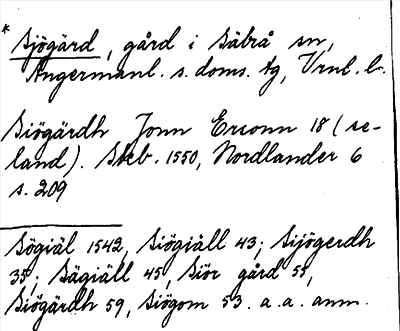 * Sjögärd, gård i Säbrå sn,
Ångermanl. s. doms. tg, Vrnl. l.
Siögärdh Jonn Ersonn 18 (se-
land). Skb. 1550, Nordlander 6
s. 209
Sögiäl 1542, Siögiäll 43; Sijögerdh
35; Sägiäll 45, Siör gård 55,
Siögärdh 59, Siögom 53. a. a. anm.